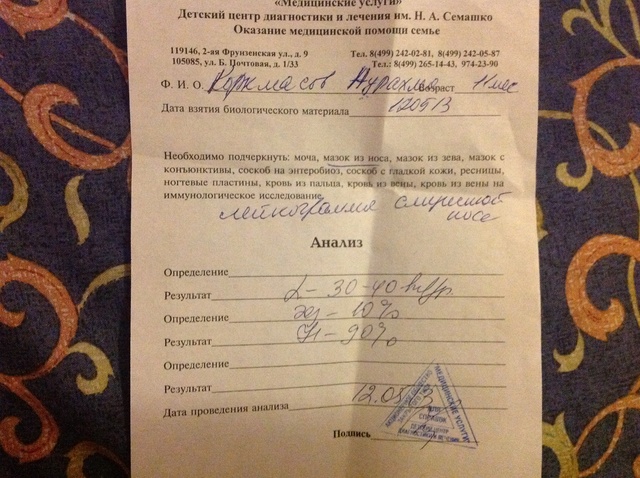 «Медицинские услуги»
Детский центр диагностики и лечения им. Н. А. Семашко
Оказание медицинской помощи семье
119146, 2-ая Фрунзенская ул., д. 9 Тел. 8(499) 242-02-81, 8(499) 242-05-87
105085, ул. Б. Почтовая, д. 1/33 Тел.: 8(499) 265-14-43, 974-23-90
Ф. И. О. Возраст 11 мес
Дата взятия биологического материала 120513
Необходимо подчеркнуть: моча, мазок из носа, мазок из зева, мазок с
конъюнктивы, соскоб на энтеробиоз, соскоб с гладкой кожи, ресницы,
ногтевые пластины, кровь из пальца, кровь из вены, кровь из вены на
иммунологическое исследование.
лейкограмма слизистой
носа
Анализ
Определение
Результат L - 30-40 в п/зр
Определение - 10%
Результат - 90%
Определение
Результат
Дата проведения анализа 12.05
Подпись
МЕДИЦИНСКИЕ УСЛУГИ
ДЛЯ
СПРАВОК